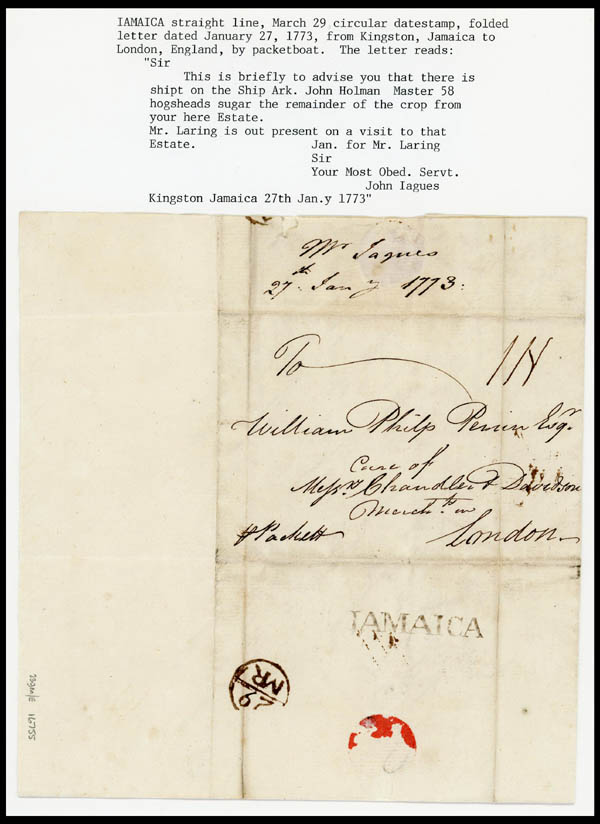 IAMAICA straight line, March 29 circular datestamp, folded
letter dated January 27, 1773, from Kingston, Jamaica to
London, England, by packetboat.  The letter reads:
"Sir
This is briefly to advise you that there is
shipt on the Ship Ark. John Holman  Master 58
hogsheads sugar the remainder of the crop from
your here Estate.
Mr. Laring is out present on a visit to that
Estate.                Jan. for Mr. Laring
Sir
Your Most Obed. Servt.
John Iagues
Kingston Jamaica 27th Jan.y 1773"
Mr Jaques
27th. Jan y 1773:
To
William Philp Perrin Esqr.
Care of
Messrs. Chandler & Davidson
Merchts. in
London
Packett
IAMAICA
29
MR